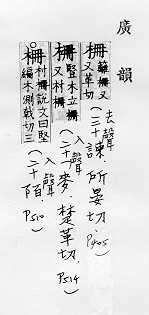 廣韻
柵 籬柵又叉革切
去聲
(三十)諫.所晏切 P405
柵 豎木立柵又村柵
入聲
(二十一)麥.楚革切 P514
柵 村柵說文曰堅編木測戟切三
入聲
(二十)陌. P510